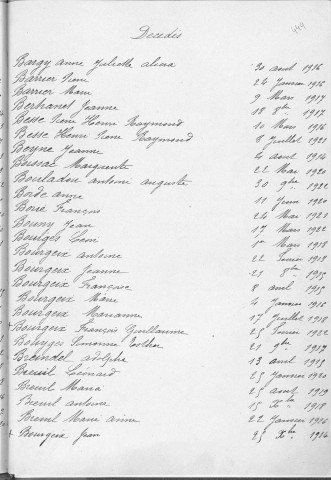 Decedés
Bargy anne Juliette alicia 30 aout 1916
Barrier Jean 24 Janvier 1916
Barrier Marie 9 Mars 1917
Bertranet Jeanne 18 8bre 1917
Besse Jean Henri Raymond 10 Mars 1916
Besse Henri Jean Raymond 8 Juillet 1921
Beyne Jeanne 4 aout 1914
Boissac Marguerite 22 Mai 1920
Bouladou antoine auguste 30 9bre 1922
Borde anne 10 Juin 1920
Borie François 24 Mai 1921
Bouny Jean 17 Mars 1922
Bourges Léon 1er Mars 1918
Bourgeix antoine 22 Fevrier 1918
Bourgeix Jeanne 21 8bre 1915
Bourgeix Françoise 8 avril 1915
Bourgeix Marie 4 Janvier 1916
Bourgeix Marianne 17 Juillet 1918
Bourgeix François Guillaume 25 Fevrier 1922
Bourges Simonne Esther 21 9bre 1917
Breindel adolphe 13 avril 1919
Breuil Léonard 25 Janvier 1920
Breuil Maria 25 aout 1919
Breuil antoine 15 Xbre 1918
Breuil Marie aimée 22 Janvier 1916
+ Bourgeix Jean 25 Xbre 1914